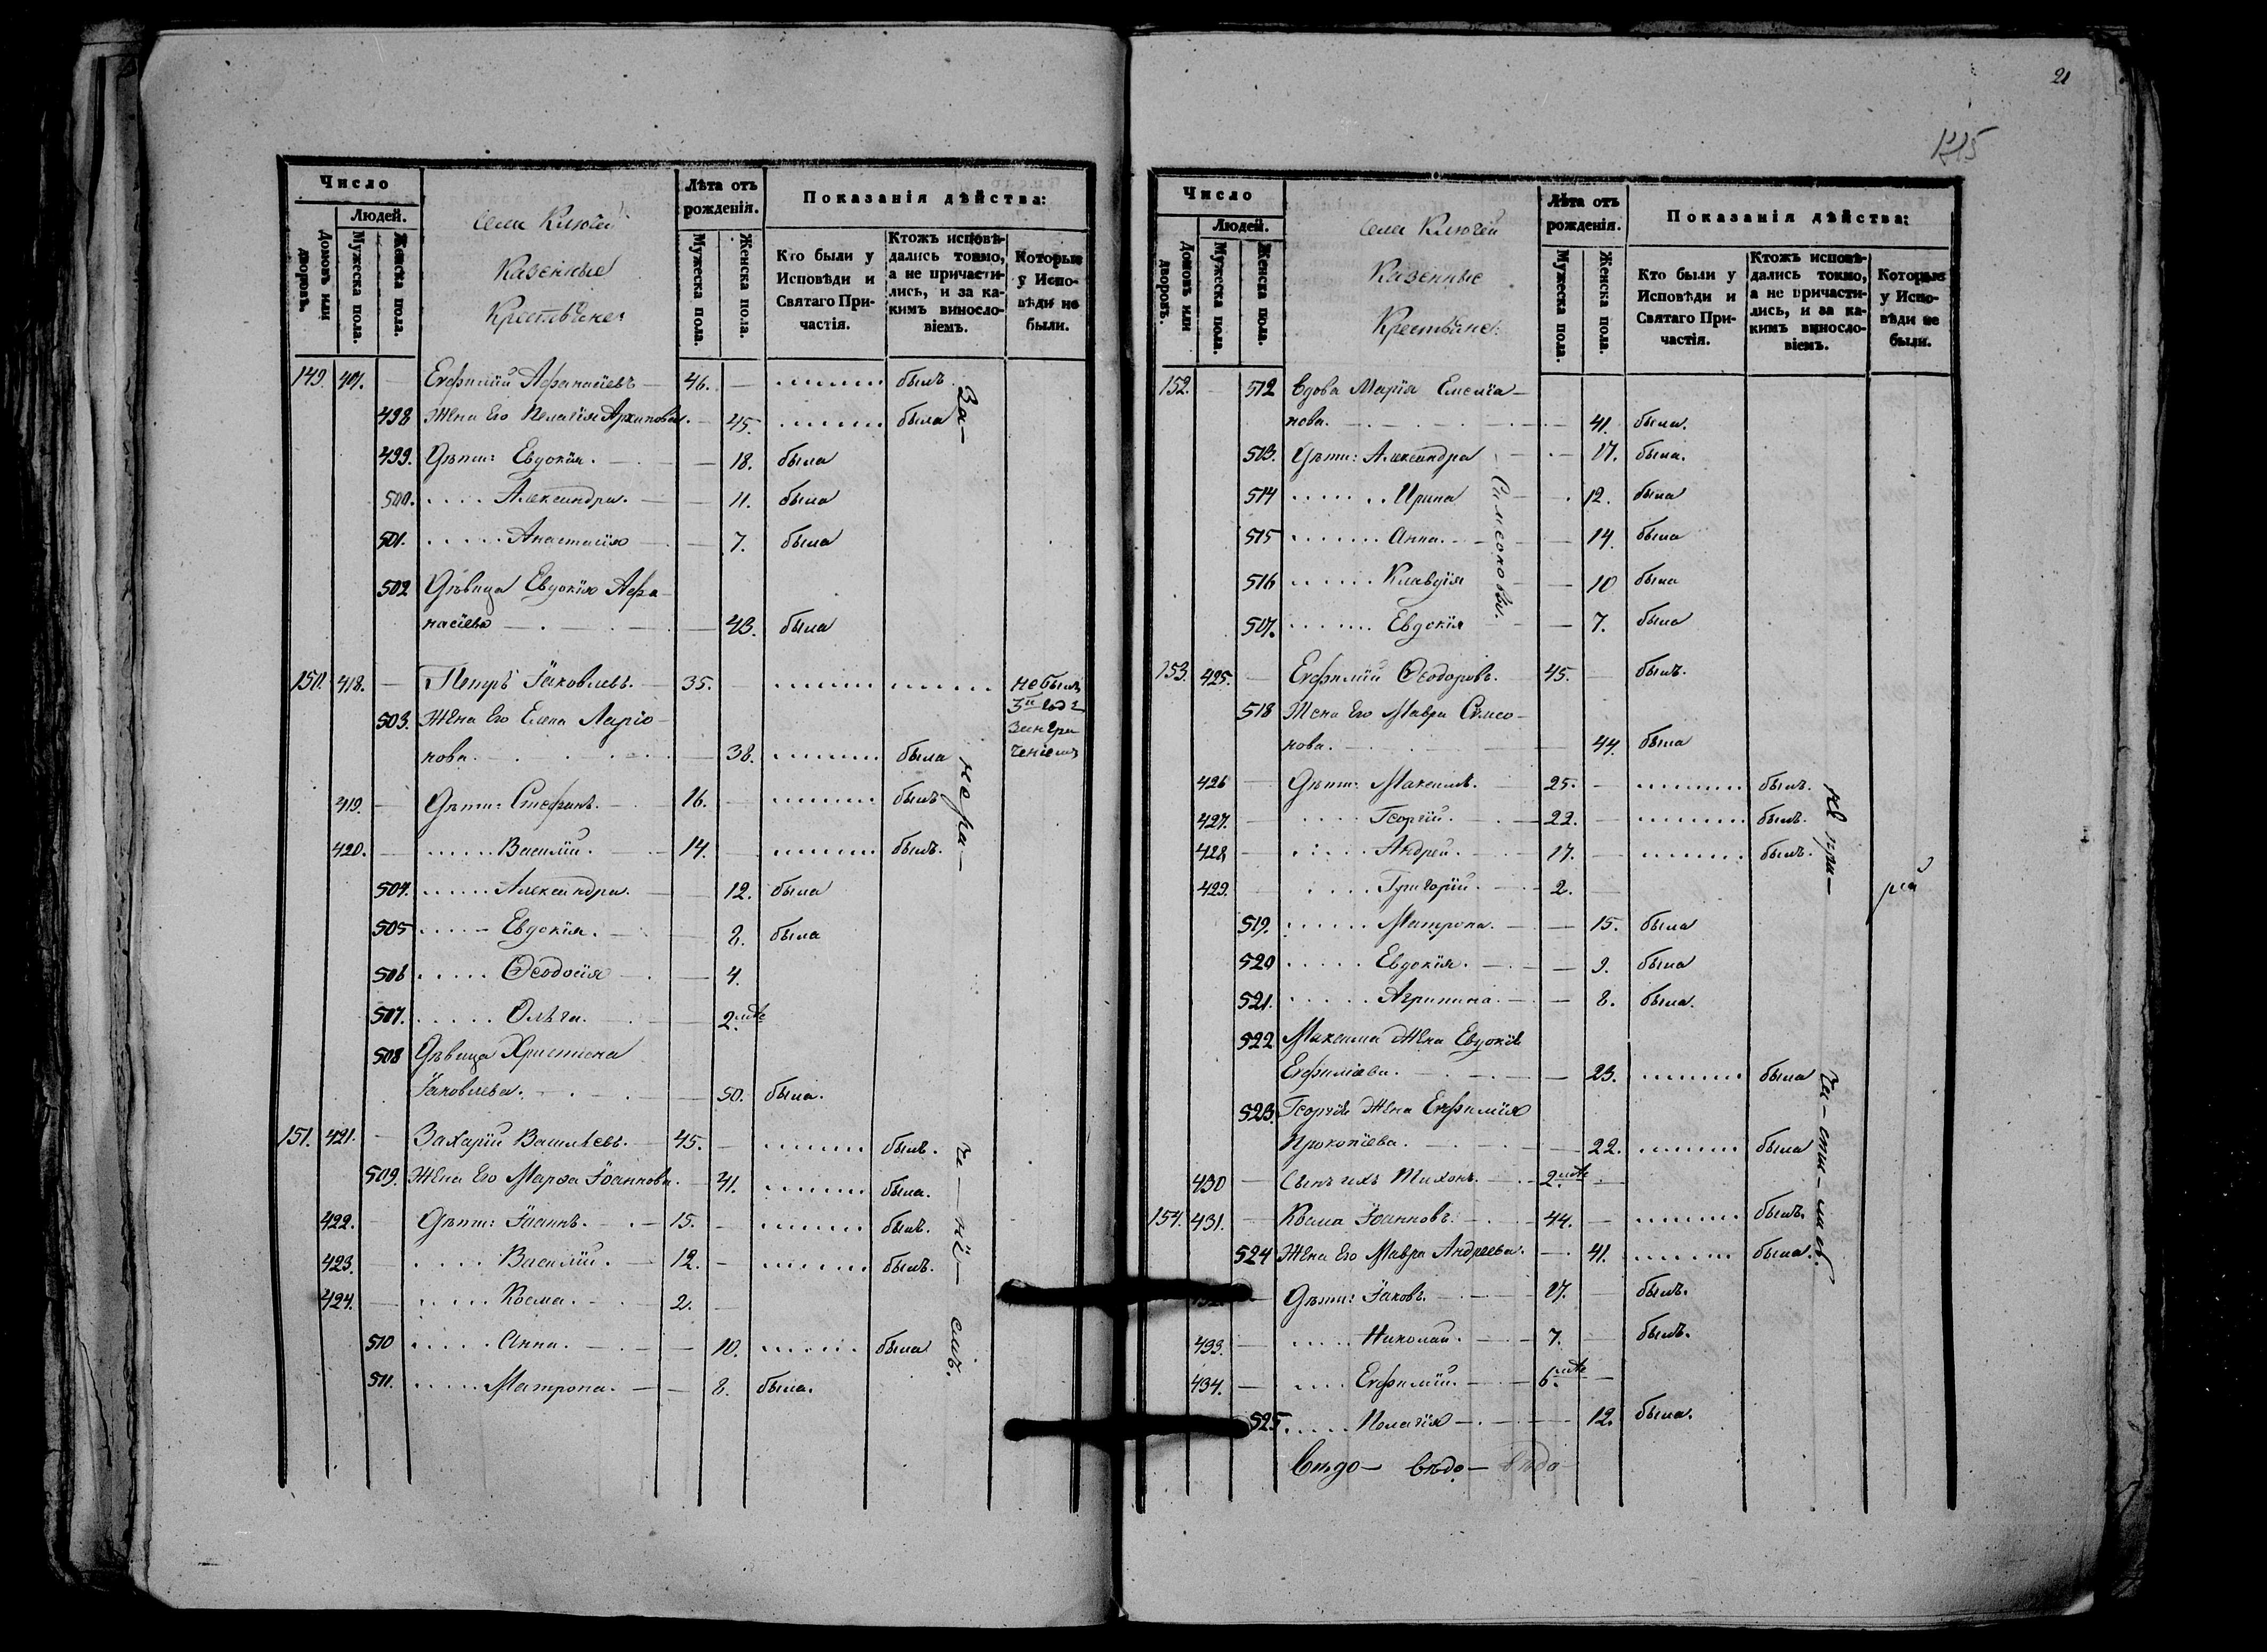 21
Число
Людей.
Домовъ или дворовъ.
Мужеска пола.
Женска пола.
Села Ключей
Казенные
Крестьяне:
Лѣта отъ рожденія.
Мужеска пола.
Женска пола.
Показанія дѣйства:
Кто были у Исповѣди и Святаго Причастія.
Ктожъ исповѣдались токмо, а не причастились, и за какимъ винословіемъ.
Которые у Исповѣди не были.
149. 417. — Евфимій Афанасіевъ — 46. — ........ былъ
498 Жена Его Пелагія Архипова. — 45. ........ была
499. Дѣти: Евдокія. — 18. была
500. .... Александра. — 11. была
501. .... Анастасія — 7. была
502 Дѣвица Евдокія Афа-
насіева — 43. была
150. 418. — Петръ Іаковлевъ. — 35. ........ ........ не былъ
503. Жена Его Елена Ларіо-
нова. — 38. ........ была
419. — Дѣти: Стефанъ. — 16. — ........ былъ
420. — ...... Василій. — 14. — ........ былъ.
504. ...... Александра. — 12. была
505 ..... Евдокія. — 8. была
506 ..... Ѳеодосія — 4.
507. ..... Ольга. — 2.
508 Дѣвица Христина
Іаковлева. — 50. была.
151. 421. — Захарій Васильевъ. — 45. — ........ былъ.
509. Жена Его Марѳа Іоаннова. — 41. ........ была.
422. — Дѣти: Іоаннъ. — 15. — ........ былъ.
423. .... Василій. — 12. — ........ былъ.
424. — .... Косма. — 2. —
510 ..... Анна. — 10. ........ была
511. ..... Матрона. — 8. была.
За-
нера-
че-ні-емъ.
Число
Людей.
Домовъ или дворовъ.
Мужеска пола.
Женска пола.
Села Ключей
Казенные
Крестьяне:
Лѣта отъ рожденія.
Мужеска пола.
Женска пола.
Показанія дѣйства:
Кто были у Исповѣди и Святаго Причастія.
Ктожъ исповѣдались токмо, а не причастились, и за какимъ винословіемъ.
Которые у Исповѣди не были.
152. — 512 Вдова Марія Емелїа-
нова. — 41. была.
513. Дѣти: Александра — 17. была.
514 ....... Ирина — 12. была
515 ....... Анна. — 14. была
516 ....... Клавдія — 10 была
517. ....... Евдокія — 7. была
Симеоновы.
153. 425. — Евфимій Ѳеодоровъ. 45. — былъ.
518 Жена Его Мавра Симео-
нова. — 44. была
426 — Дѣти: Максимъ. — 25. — ........ былъ.
427. — .... Георгій. — 22. — ........ былъ.
428 — .... Андрей. — 17. — ........ былъ.
429. — .... Григорій. — 2. —
519. ...... Матрона. — 15. была
520 ..... Евдокія. — 9. была
521. ...... Агрипина. — 8. была.
522 Максима Жена Евдокія
Евфиміева. — 23. ........ была
523. Георгія Жена Евфимія
Прокопіева. — 22. ........ была
430 — Сынъ ихъ Тихонъ. — 2
154. 431. — Косма Іоанновъ. — 44. — ........ былъ.
524 Жена Его Мавра Андреева. — 41. ........ была.
— Дѣти: Іаковъ. — 17. — былъ.
433. — ..... Николай. — 7. — былъ.
434. — .... Евфимій. — 6. —
525. .... Пелагія — 12. была.
не при-
ча-сти-лись.
Вѣдо- вѣдо- вѣдо